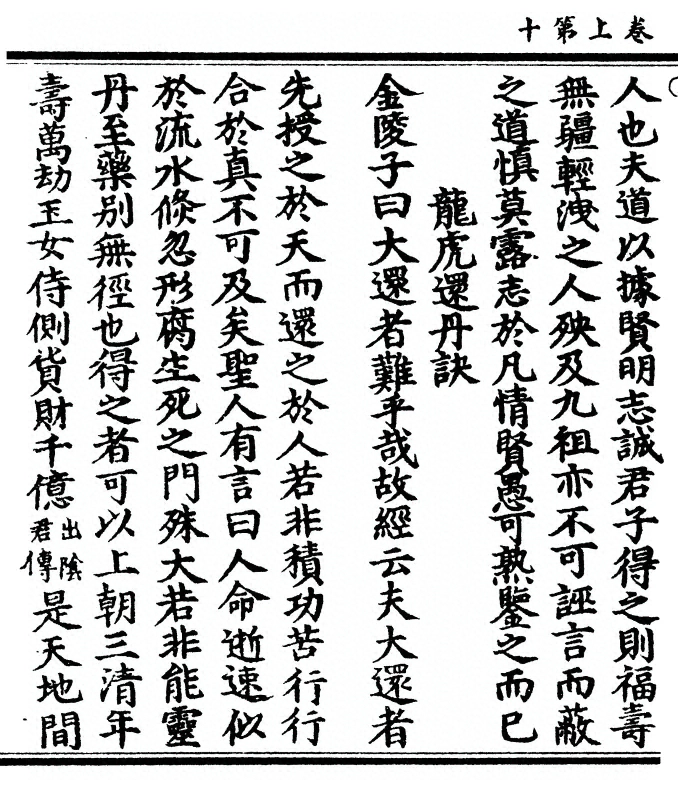 卷上第十
人也夫道以據賢明志誠君子得之則福壽
無疆輕洩之人殃及九祖亦不可誣言而蔽
之道慎莫露志於凡情賢愚可熟鑒之而已
龍虎還丹訣
金陵子曰大還者難乎哉故經云夫大還者
先授之於天而還之於人若非積功苦行行
合於真不可及矣聖人有言曰人命逝速似
於流水倏忽形腐生死之門殊大若非能靈
丹至藥別無徑也得之者可以上朝三清年
壽萬劫玉女侍側貨財千億出陰君傳是天地間